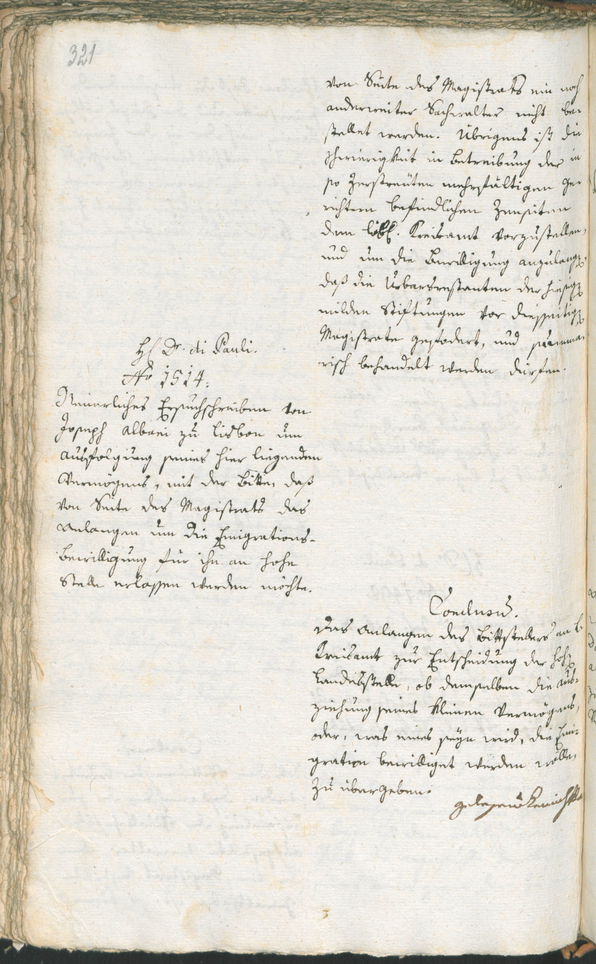 321
von Seite des Magistrats ein noch
anderweiter Sachwalter nicht be-
stellet werden. Übrigens ist die
Schwierigkeit in Betreibung der in
so zerstreuten mehrfältigen Ge-
richtern befindlichen Zensiten
dem löbl. Kreisamt vorzustellen,
und um die Bewilligung anzulangen
daß die Urbarsrestanten der hiesig
milden Stiftungen vor diesseitig
Magistrate gefodert, und summa-
risch behandelt werden dürfen.
H Dr. di Pauli.
No 1514.
Neuerliches Ersuchschreiben von
Joseph Albani zu Lisbon um
Ausfolgung seines hier liegenden
Vermögens, mit der Bitte, daß
von Seite des Magistrats das
Anlangen um die Emigrations-
bewilligung für ihn an hohe
Stelle erlassen werden möchte.
Conclusum.
Das Anlangen des Bittstellers an
Kreisamt zur Entscheidung der hohe
Landesstelle, ob demselben die aus-
ziehung seines kleinen Vermögens,
oder, was eines seyn wird, die Emi-
gration bewilliget werden wolle,
zu übergeben.